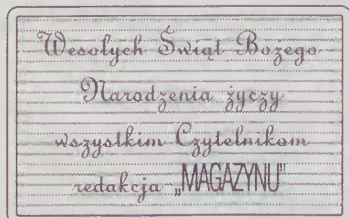 Wesołych Świąt Bożego
Narodzenia życzy
wszystkim Czytelnikom
redakcja „MAGAZYNU"